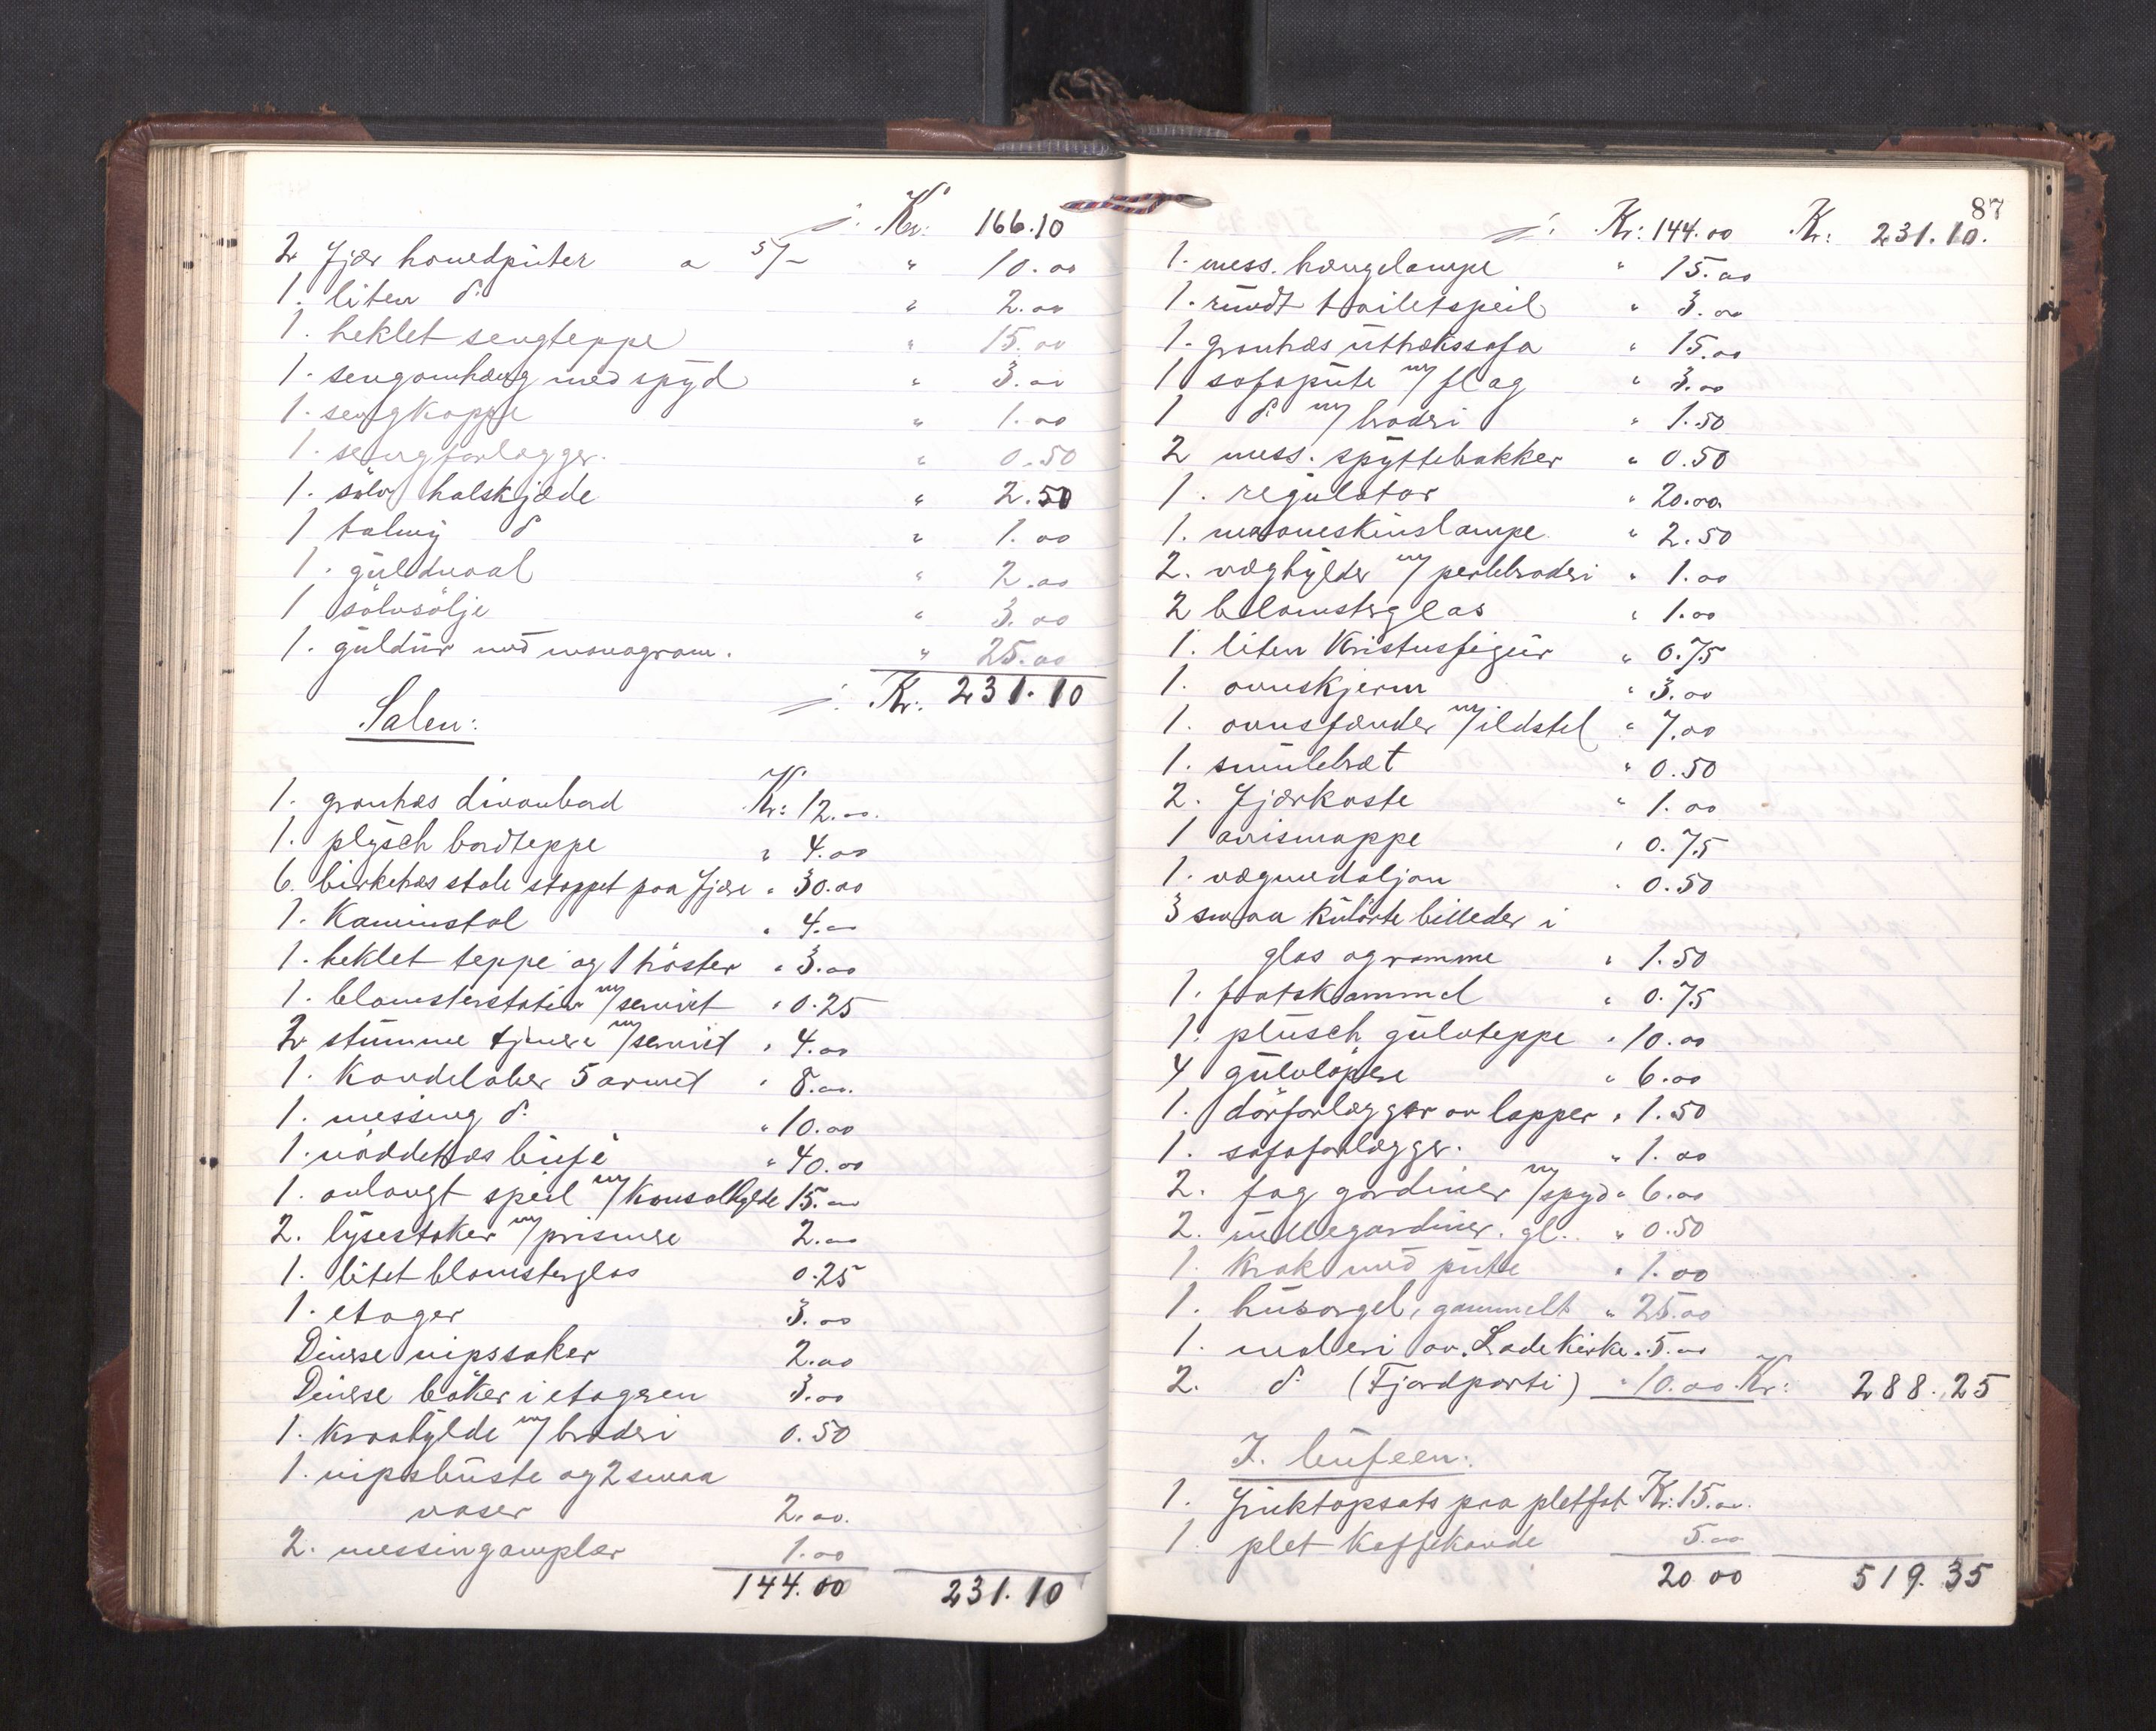 Kr. 166.10
2 fjær hovedputer a 5/- " 10.00
1. liten do. " 2.00
1. heklet sengteppe " 15.00
1. sengomhæng med spyd " 3.00
1. sengkappe " 1.00
1. sengforlægger. " 0.50
1. sølv halskjæde " 2.50
1 talmy do " 1.00
1. guldnaal " 2.00
1 sølvsølje " 3.00
1. guldur med monogram. " 25.00
Kr. 231.10
Salen:
1. graahvs divanbord Kr: 12.00.
1. plysch bordteppe " 4.00
6. birketræs stole stoppet paa fjære " 30.00
1. Kaminstol " 4.00
1. heklet teppe og 1 " 3.00
1. blomsterstativ m/ serviet " 0.25
2 stumme tjenere m/ serviet " 4.00
1. Kandelaber 5 armet " 8.00.
1. messing do. " 10.00
1. nøddetræs büfe " 40.00
1. avlangt speil m/ Konsolhylde 15.00
2. lysestaker m/ prismer 2.00
1. litet blomsterglas 0.25
1. etager 3.00
Diverse nipssaker 2.00
Diverse bøker i etageren 3.00
1. Kraahylde m/ broderi 0.50
1. nipsbüste og 2 smaa
vaser 2.00.
2. messingampler 1.00
144.00 231.10
87
Kr: 144.00 Kr: 231.10.
1. mess. hængelampe " 15.00
1. rundt toiletspeil " 3.00
1. grantræs uttrækssofa " 15.00
1 sofapute m/ flag " 3.00
1 do. m/ broderi " 1.50
2 mess. spyttebakker " 0.50
1. regulator " 20.00
1. maaneskinslampe " 2.50
2. væghylder m/ perlebroderi " 1.00
2 blomsterglas " 1.00
1. liten Kristusfigur " 0.75
1. ovnskjerm " 3.00
1. ovnsfænder m/ ildstel " 7.00
1. smulebræt " 0.50
2. fjærkoste " 1.00
1 avismappe " 0.75
1. vægmedaljon " 0.50
3 smaa kulørte billeder i
glas og ramme " 1.50
1. fotskammel " 0.75
1. plüsch gulvteppe " 10.00
4 gulvløpere " 6.00
1. dørforlægger av lapper " 1.50
1. sofaforlægger. " 1.00
2. fag gardiner m/ spyd " 6.00
2. rullegardiner. gl. " 0.50
1. Krak med pute " 1.00
1. husorgel, gammelt " 25.00
1. maleri av Lade Kirke " 5.00
2. do (Fjordparti) " 10.00 Kr: 288.25
I. büfeen:
1. Fruktopsats paa pletfot Kr: 15.00.
1. plet Kaffekande 5.00
20 00 519.35